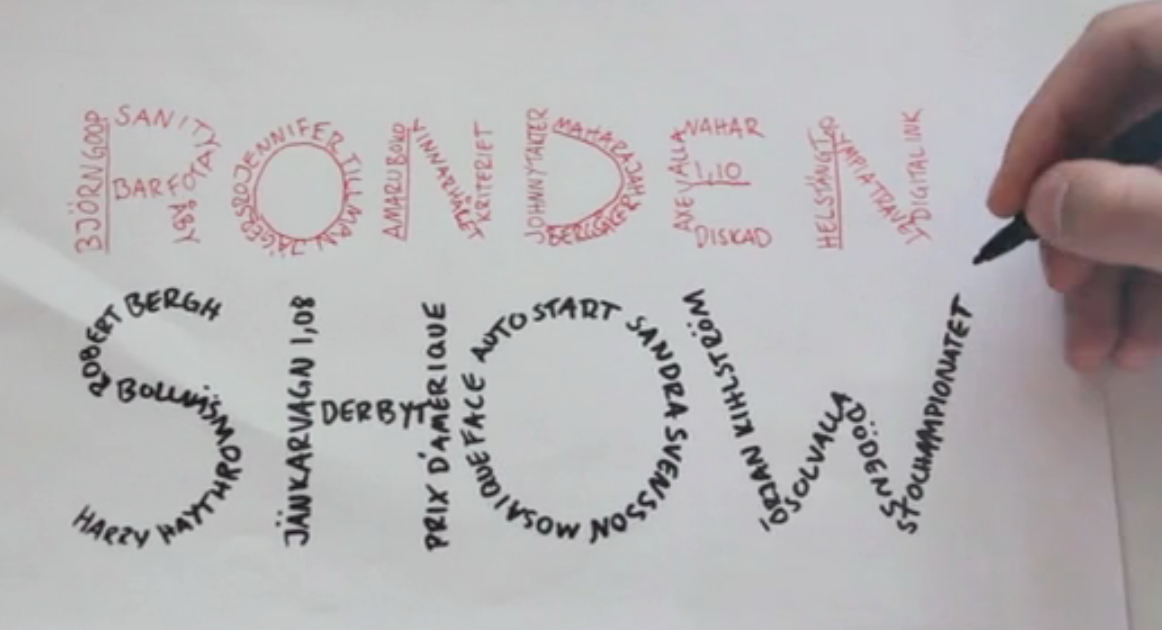 BJÖRN GOOP SANITY BARFOTA YBABY
JÄGERSRO JENNIFER TILLMAN
AMARU BOKO FINNARHÄLL KRITERIET
JOHNNY TAKTER MAHARAJAH BERGSÅKER
AXEVALLA NAHAR 1,10 DISKAD
HELSTÄNGT OLYMPIATRAVET DIGITAL INK
ROBERT BERGH BOLLNÄS MOW HARZY HAYTHROW
JÄNKARVAGN 1,08 DERBYT PRIX D'AMERIQUE
AUTOSTART SANDRA SVENSSON MOSAIQUE FACE
ÖRJAN KIHLSTRÖM SOLVALLA DÖDENS STOCHAMPIONATET